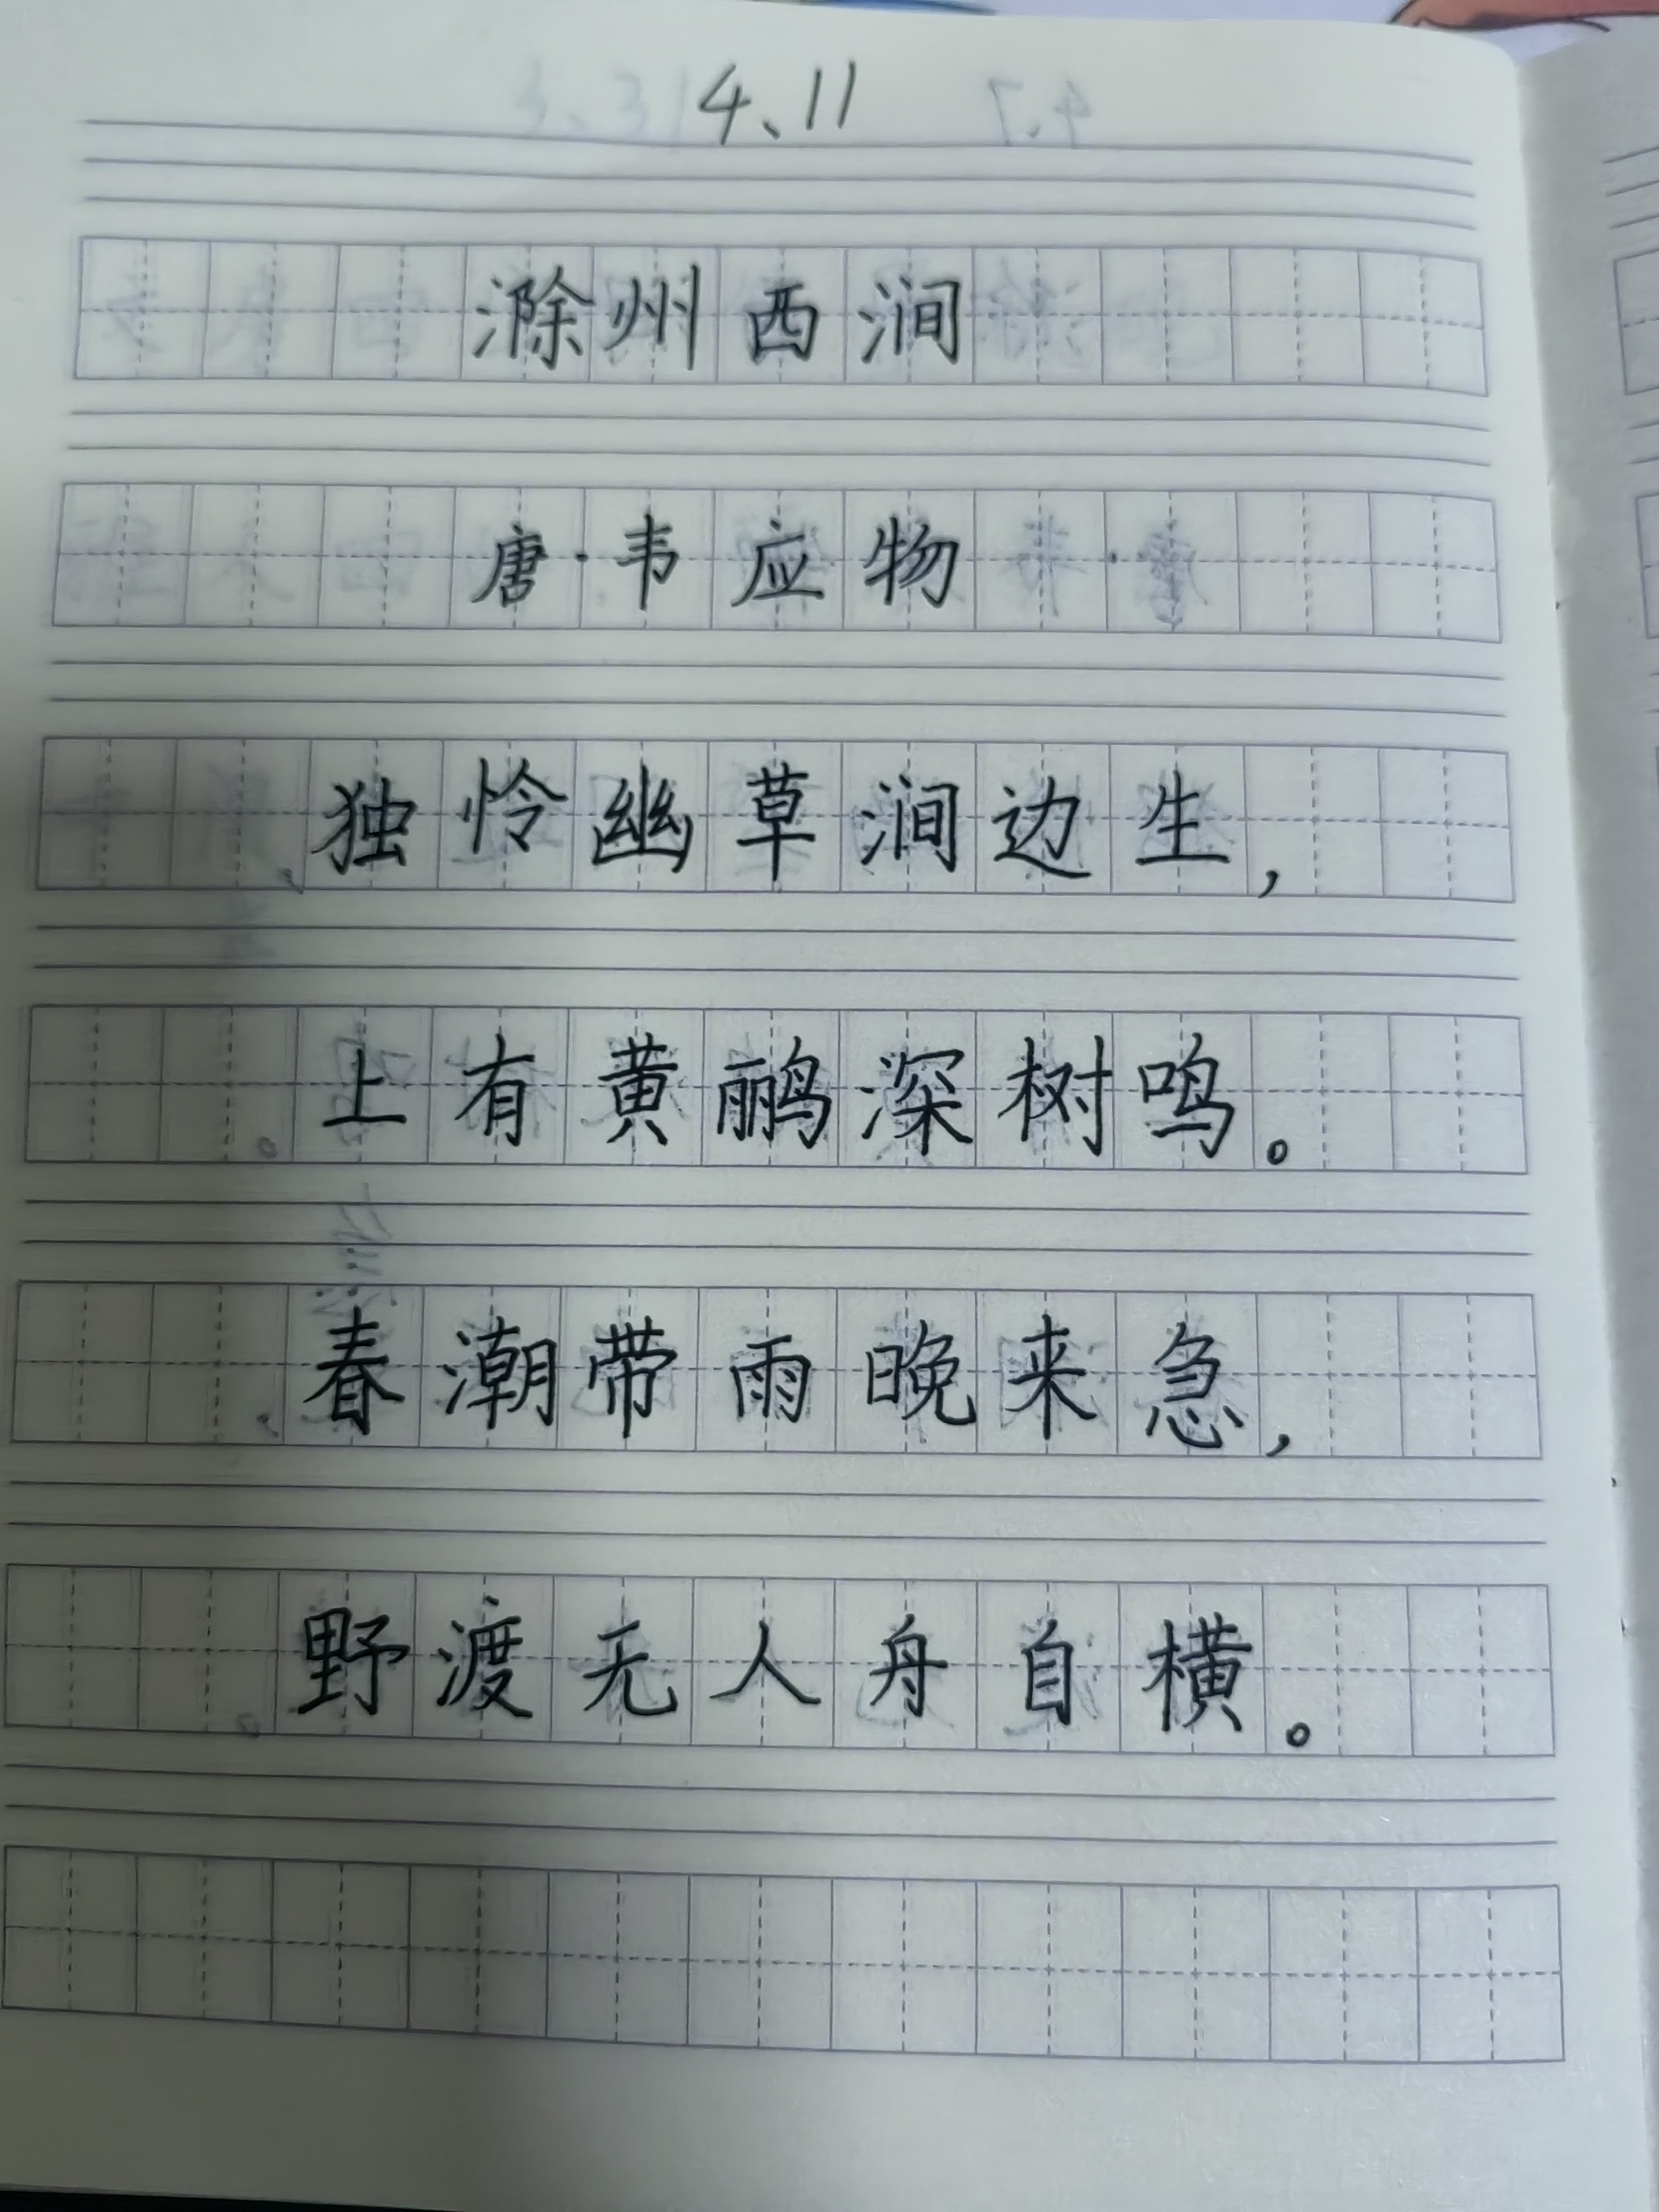 4、11
滁州西涧
唐·韦应物
独怜幽草涧边生，
上有黄鹂深树鸣。
春潮带雨晚来急，
野渡无人舟自横。